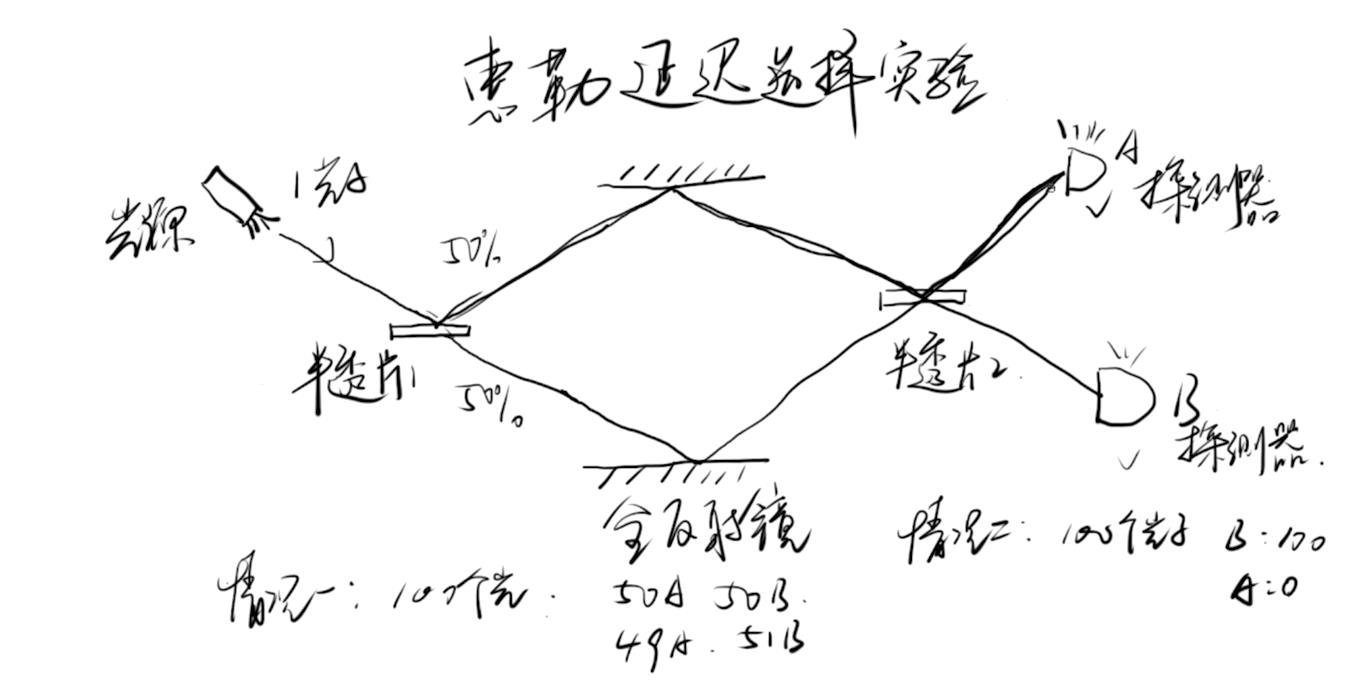 惠勒延迟选择实验
光源
1光子
50%
50%
半透片1
半透片2
A
探测器
B
探测器
全反射镜
情况一: 100个光. 50A 50B.
49A. 51B
情况二: 100个光子 B:100
A:0